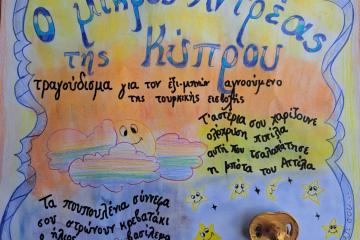 Ο μικρός Αντρέας
της Κύπρου
τραγούδισμα για τον έξι-μηνών αγνοούμενο
της τουρκικής εισβολής
Τ'αστέρια σου χαρίζουνε
ολόχρυση πατίλα
αυτή που τσαλαπάτησε
η μπότα του Αττίλα
Τα πουπουλένια σύννεφα
σου στρώνουν κρεβατάκι
ο ήλιος βασίλεμα